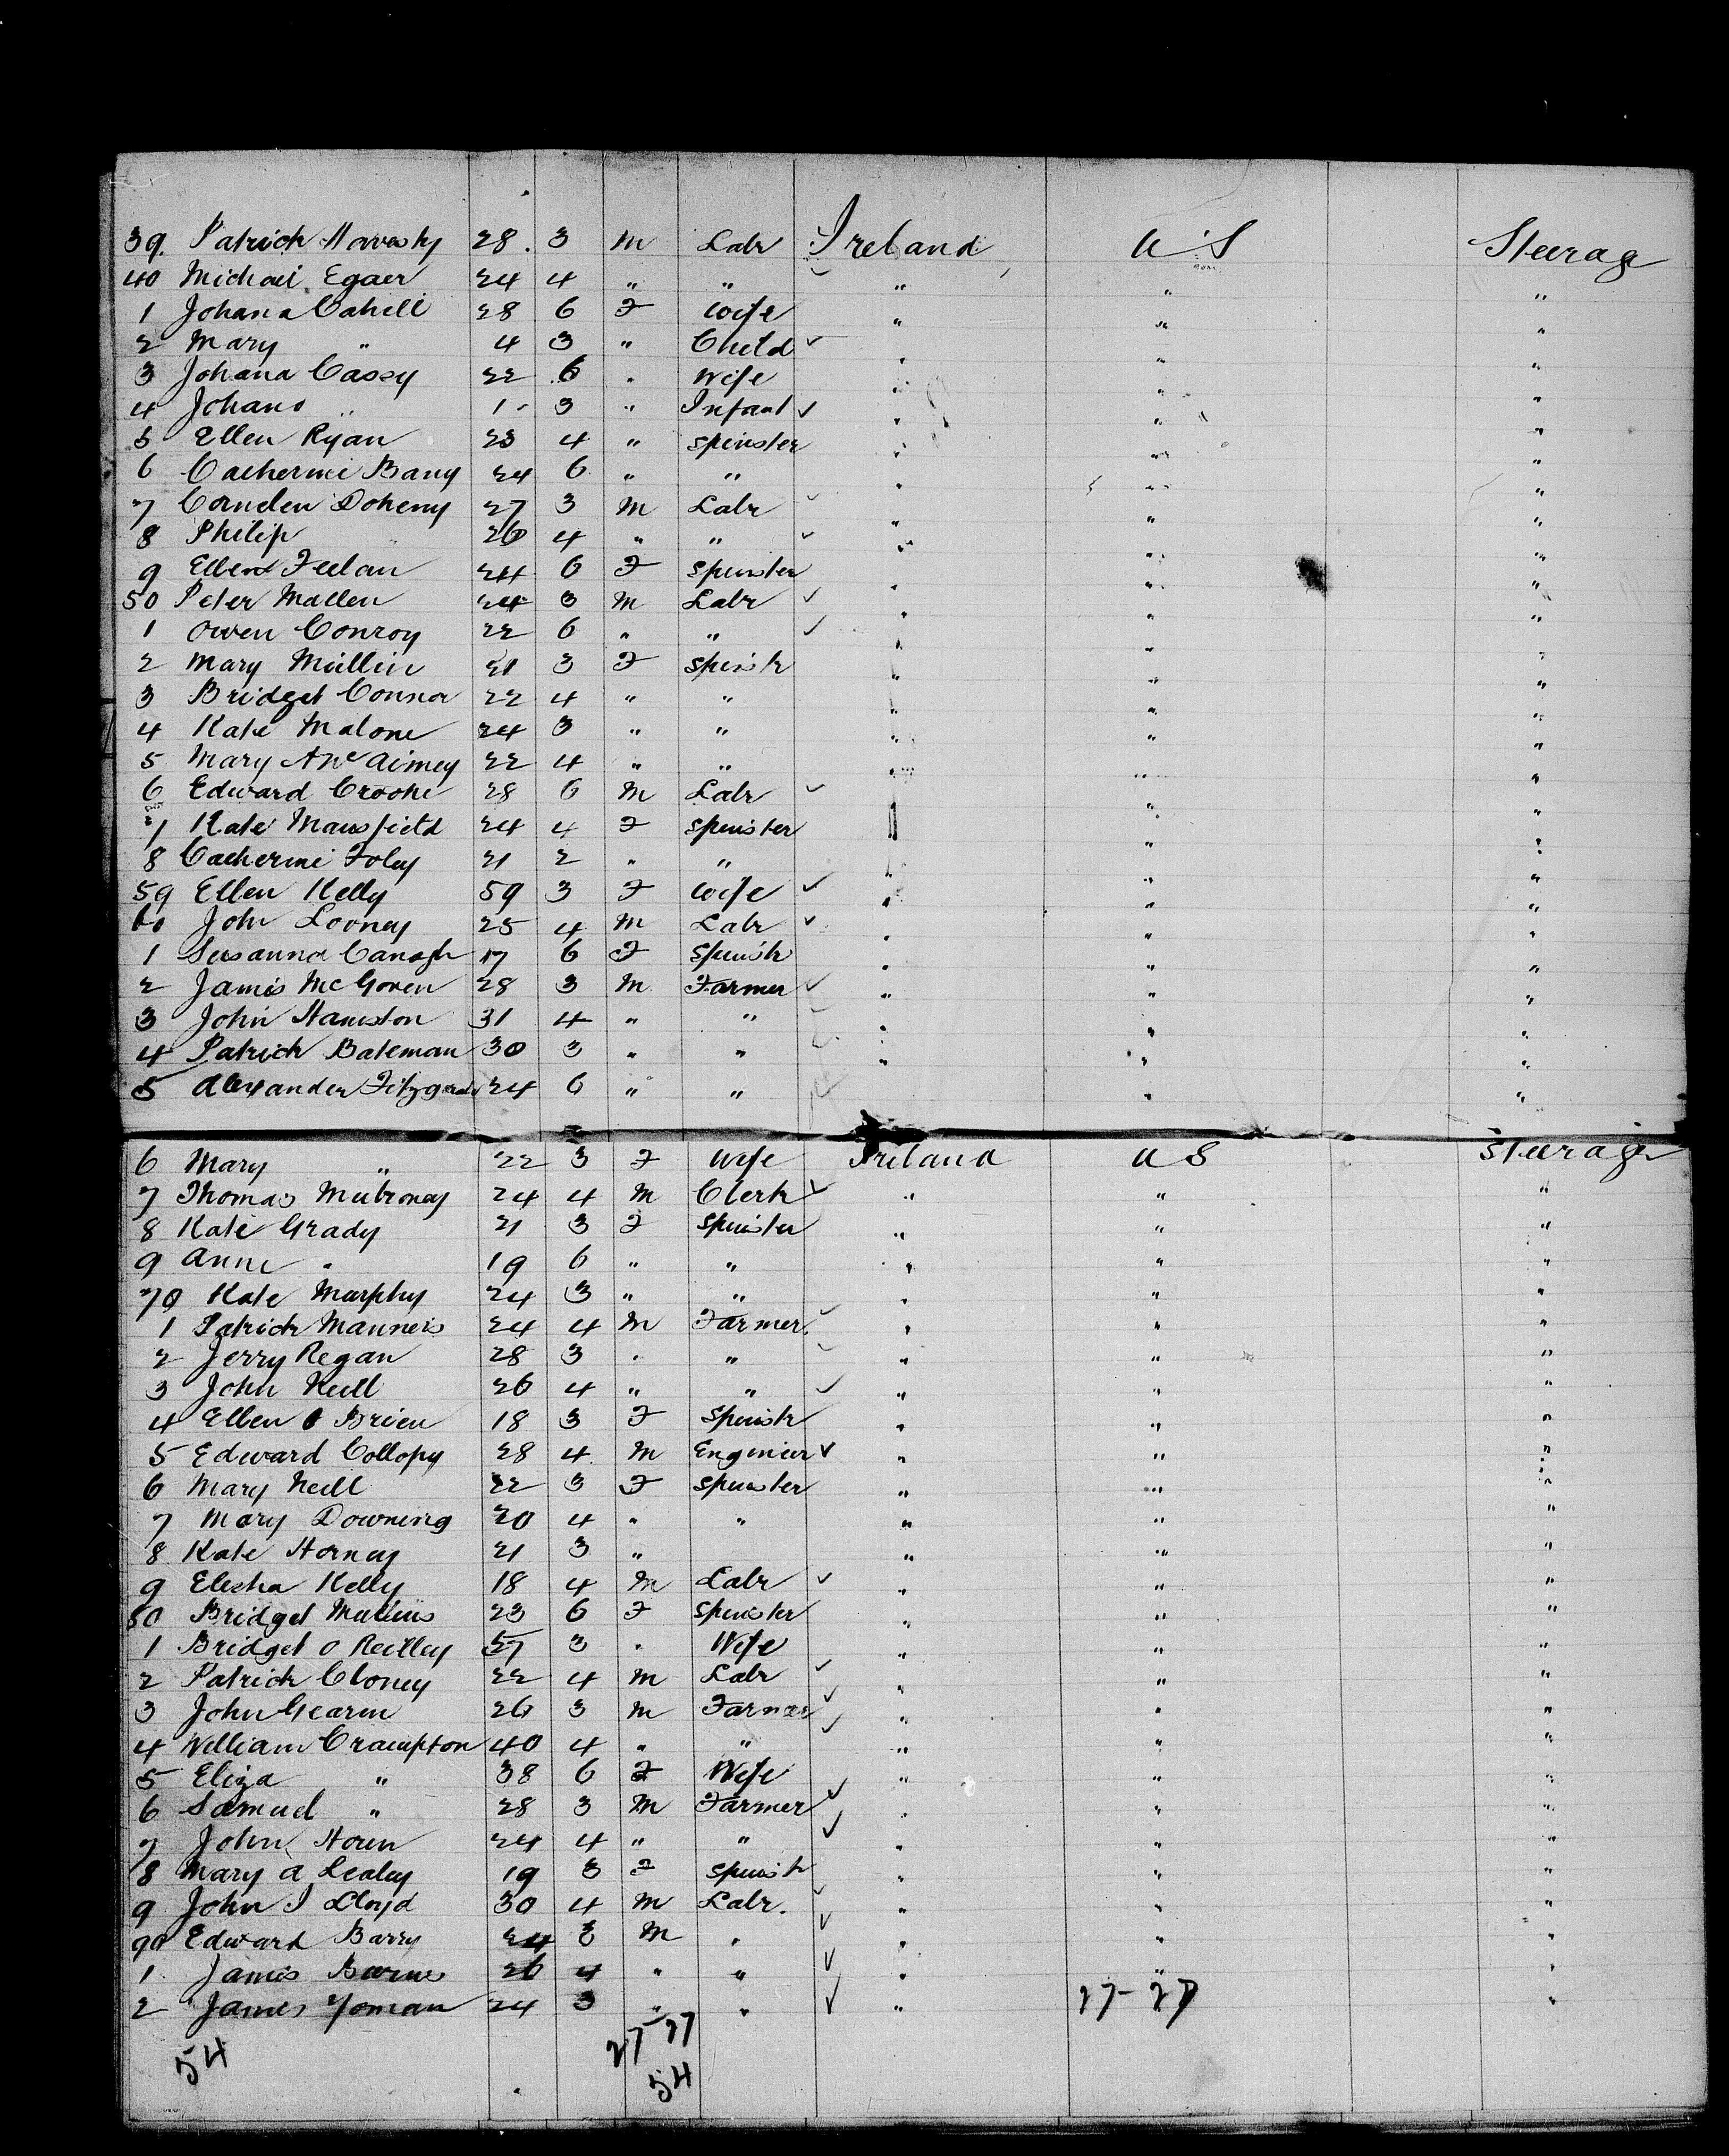 39. Patrick Haversty 28. 3 M Labr Ireland U S Steerage
40 Michael Egaer 24 4 " " " " "
1 Johana Cahill 28 6 F Wife " " "
2 Mary " 4 3 " Child " " "
3 Johana Casey 22 6 " Wife " " "
4 Johana " 1 - 3 " Infant " " "
5 Ellen Ryan 23 4 " Spinster " " "
6 Catherine Barry 24 6 " " " " "
7 Cornelen Doheny 27 3 M Labr " " "
8 Philip " 26 4 " " " " "
9 Ellen Feelan 24 6 F Spinster " " "
50 Peter Mallen 24 3 M Labr " " "
1 Owen Conroy 22 6 " " " " "
2 Mary Mullin 21 3 F Spinstr " " "
3 Bridget Connor 22 4 " " " " "
4 Kate Malone 24 3 " " " " "
5 Mary A Mc Aimey 22 4 " " " " "
6 Edward Crooke 28 6 M Labr " " "
7 Kate Mansfield 24 4 F Spinster " " "
8 Catherine Foley 21 2 " " " " "
59 Ellen Kelly 59 3 F Wife " " "
60 John Looney 25 4 M Labr " " "
1 Susanna Canagh 17 6 F Spinstr " " "
2 James McGoven 28 3 M Farmer " " "
3 John Haniston 31 4 " " " " "
4 Patrick Bateman 30 3 " " " " "
5 Alexander Fitzgerald 24 6 " " " " "
6 Mary " 22 3 F Wife Ireland U S Steerage
7 Thomas Mulroney 24 4 M Clerk " " "
8 Kate Grady 21 3 F Spinster " " "
9 Anne " 19 6 " " " " "
70 Kate Murphy 24 3 " " " " "
1 Patrick Manneis 24 4 M Farmer. " " "
2 Jerry Regan 28 3 " " " " "
3 John Neill 26 4 " " " " "
4 Ellen O Brien 18 3 F Spinstr " " "
5 Edward Collopy 28 4 M Engineer " " "
6 Mary Neill 22 3 F Spinster " " "
7 Mary Downing 20 4 " " " " "
8 Kate Horney 21 3 " " " "
9 Elisha Kelly 18 4 M Labr " " "
80 Bridget Mullins 23 6 F Spinster " " "
1 Bridget O Reilley 57 3 " Wife " " "
2 Patrick Cloney 22 4 M Labr " " "
3 John Gearin 26 3 M Farmer " " "
4 William Crampton 40 4 " " " " "
5 Eliza " 38 6 F Wife " " "
6 Samuel " 28 3 M Farmer " " "
7 John Horen 24 4 " " " " "
8 Mary A Lealey 19 3 F Spinstr " " "
9 John J Lloyd 30 4 M Labr. " " "
90 Edward Barry 24 3 M " " " "
1 James Burns 26 4 " " " " "
2 James Yoman 24 3 " " " 27-27 "
54 27-27
54